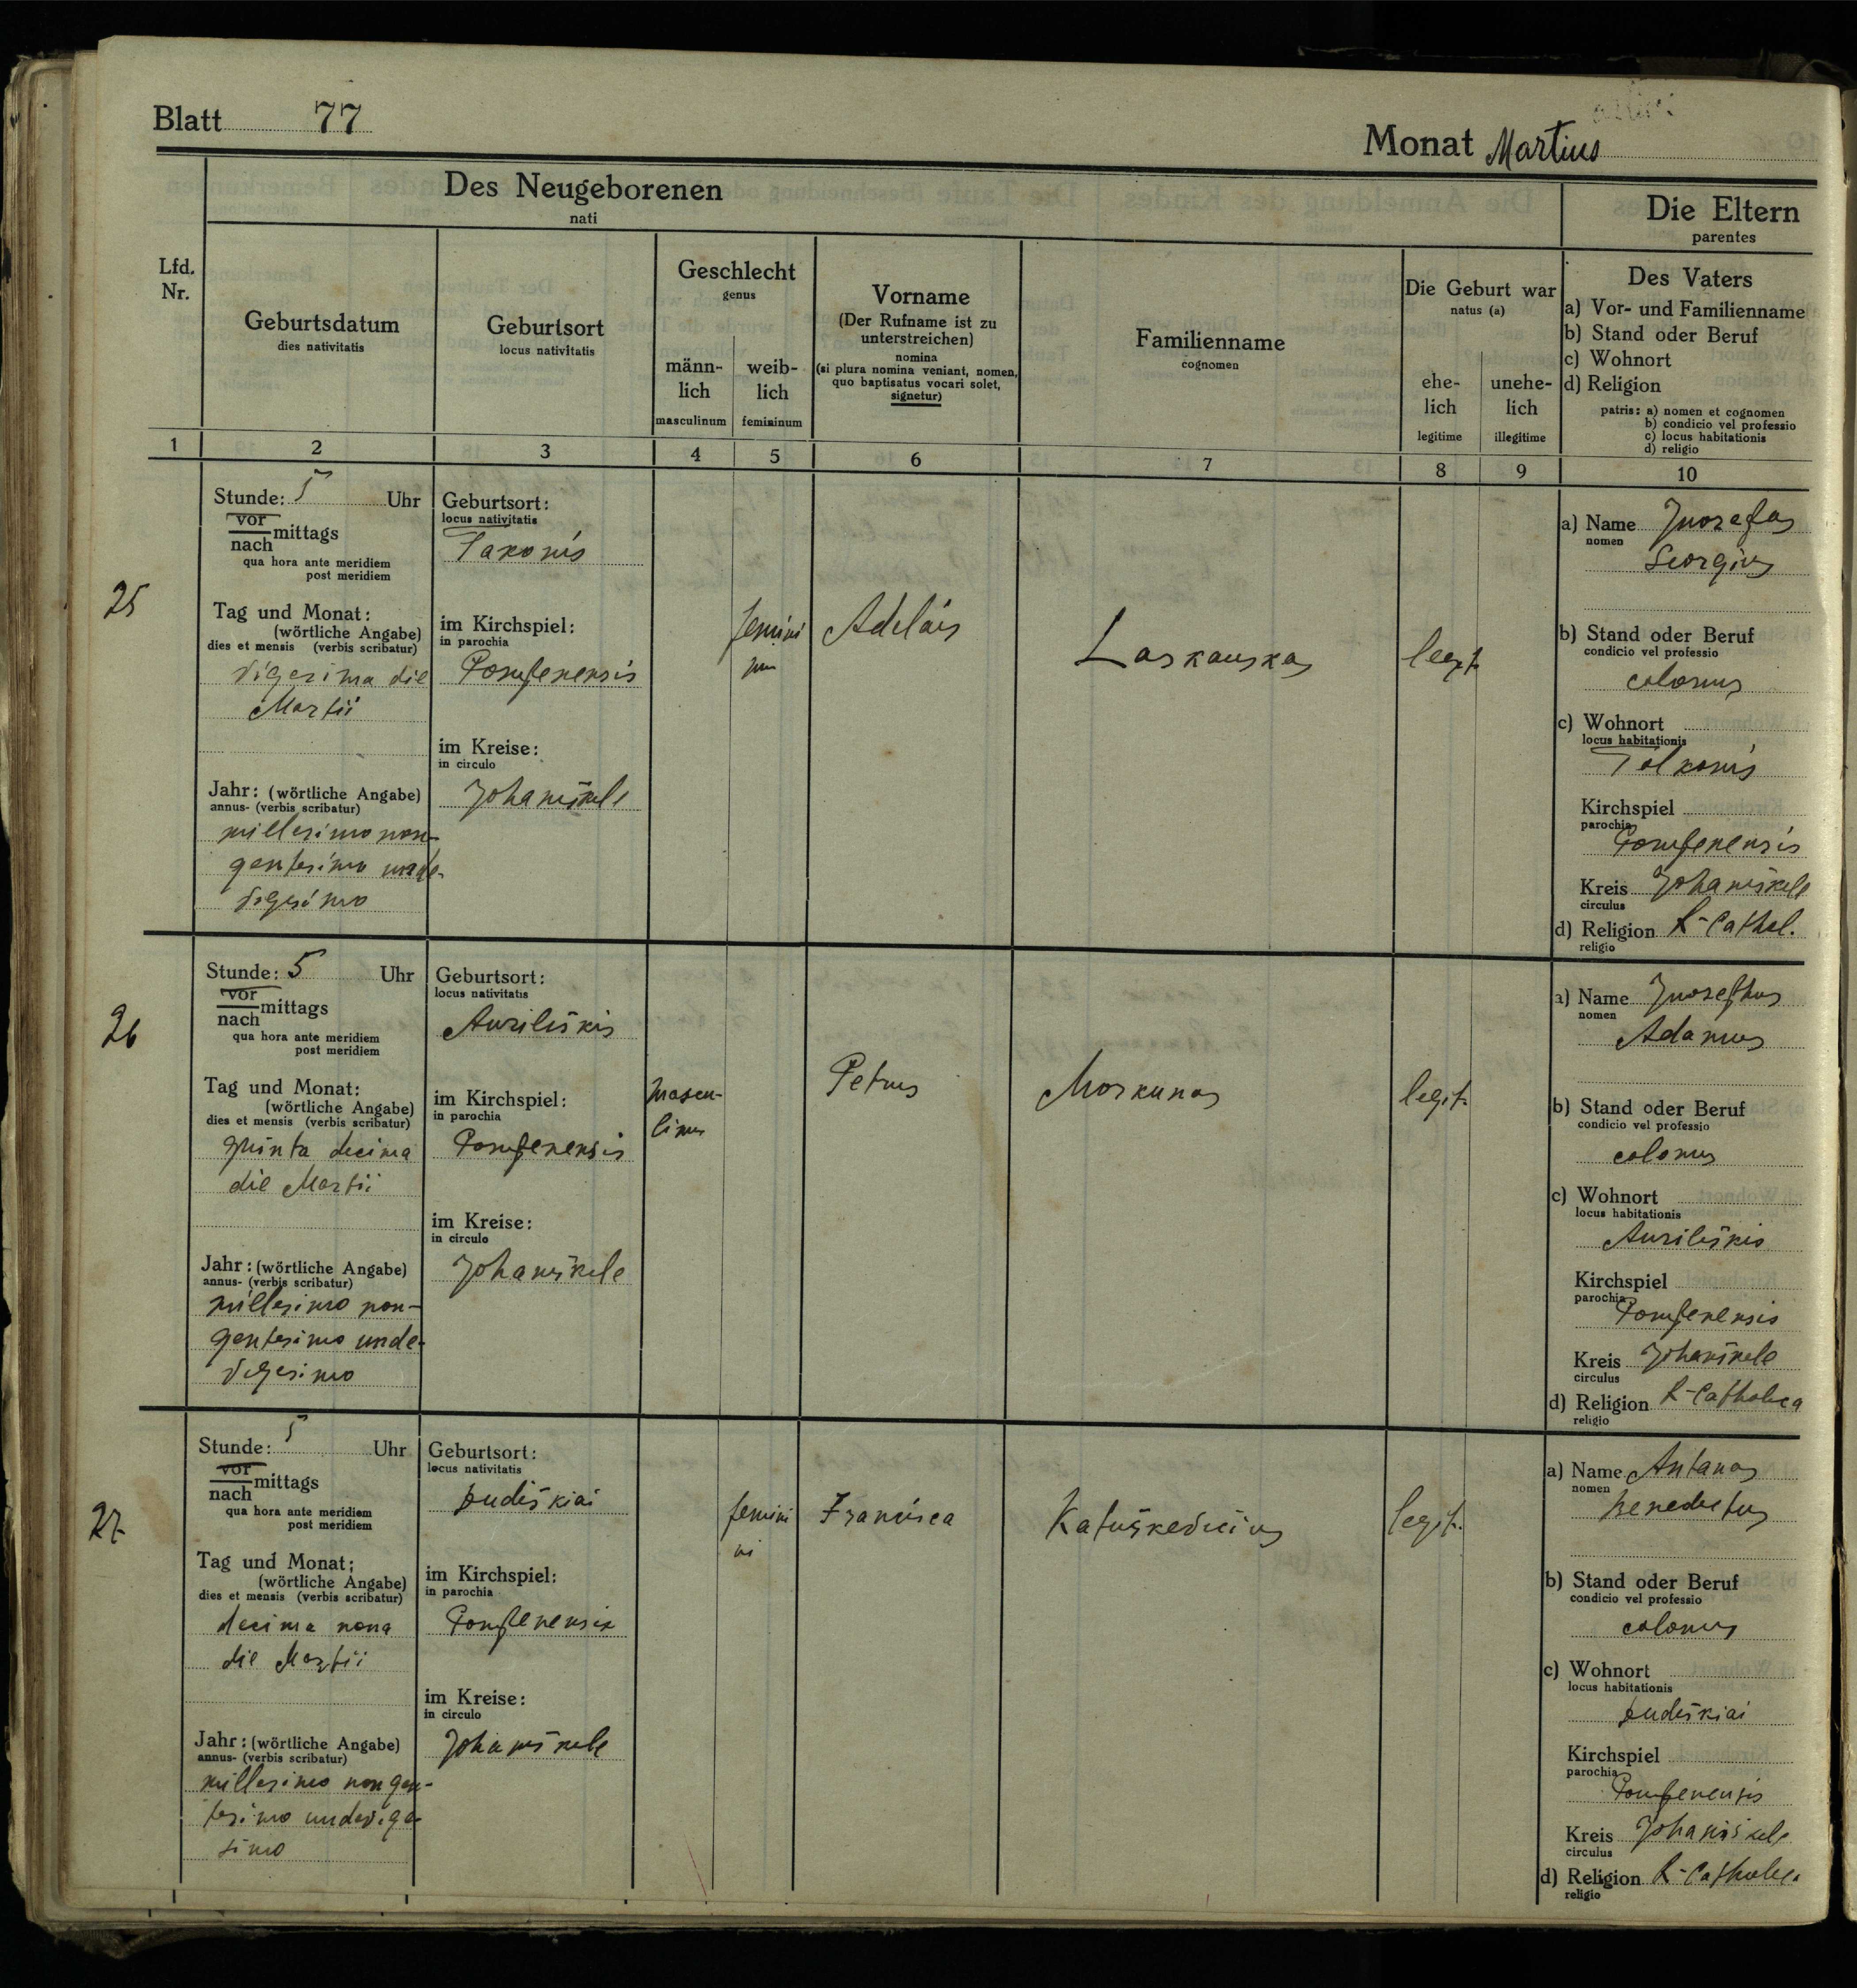 Blatt 77
Monat Martius
Des Neugeborenen
nati
Die Eltern
parentes
Lfd.
Nr.
Geburtsdatum
dies nativitatis
Geburtsort
locus nativitatis
Geschlecht
genus
männ-
lich
masculinum
weib-
lich
femininum
Vorname
(Der Rufname ist zu
unterstreichen)
nomina
(si plura nomina veniant, nomen,
quo baptisatus vocari solet,
signetur)
Familienname
cognomen
Die Geburt war
natus (a)
ehe-
lich
legitime
unehe-
lich
illegitime
Des Vaters
a) Vor- und Familienname
b) Stand oder Beruf
c) Wohnort
d) Religion
patris: a) nomen et cognomen
b) condicio vel professio
c) locus habitationis
d) religio
1 2 3 4 5 6 7 8 9 10
25
Stunde: 5 Uhr
vor
nach mittags
qua hora ante meridiem
post meridiem
Tag und Monat:
(wörtliche Angabe)
dies et mensis (verbis scribatur)
vigesima die
Martii
Jahr: (wörtliche Angabe)
annus- (verbis scribatur)
millesimo non-
gentesimo unde-
vigesimo
Geburtsort:
locus nativitatis
im Kirchspiel:
in parochia
Pompenensis
im Kreise:
in circulo
Johaniškele
femini
num
Adelais
Laskauskas
legit.
a) Name Juozefas
nomen
Georgius
b) Stand oder Beruf
condicio vel professio
colonus
c) Wohnort
locus habitationis
Talkonis
Kirchspiel
parochia
Pompenensis
Kreis Johaniškele
circulus
d) Religion R-Cathol.
religio
26
Stunde: 5 Uhr
vor
nach mittags
qua hora ante meridiem
post meridiem
Tag und Monat:
(wörtliche Angabe)
dies et mensis (verbis scribatur)
quinta decima
die Martii
Jahr: (wörtliche Angabe)
annus- (verbis scribatur)
millesimo non-
gentesimo unde-
vigesimo
Geburtsort:
locus nativitatis
Auriliškis
im Kirchspiel:
in parochia
Pompenensis
im Kreise:
in circulo
Johaniškele
mascu-
linus
Petrus
Morkunas
legit.
a) Name Juozephus
nomen
Adamus
b) Stand oder Beruf
condicio vel professio
colonus
c) Wohnort
locus habitationis
Auriliškis
Kirchspiel
parochia
Pompenensis
Kreis Johaniškele
circulus
d) Religion R-Catholica
religio
27
Stunde: 5 Uhr
vor
nach mittags
qua hora ante meridiem
post meridiem
Tag und Monat:
(wörtliche Angabe)
dies et mensis (verbis scribatur)
decima nona
die Martii
Jahr: (wörtliche Angabe)
annus- (verbis scribatur)
millesimo nongen-
tesimo undevige-
simo
Geburtsort:
locus nativitatis
im Kirchspiel:
in parochia
Pompenensis
im Kreise:
in circulo
Johaniškele
femini
ni
Francisca
legit.
a) Name Antanas
nomen
Benedictus
b) Stand oder Beruf
condicio vel professio
colonus
c) Wohnort
locus habitationis
Kirchspiel
parochia
Pompenensis
Kreis Johaniškele
circulus
d) Religion R-Catholic.
religio